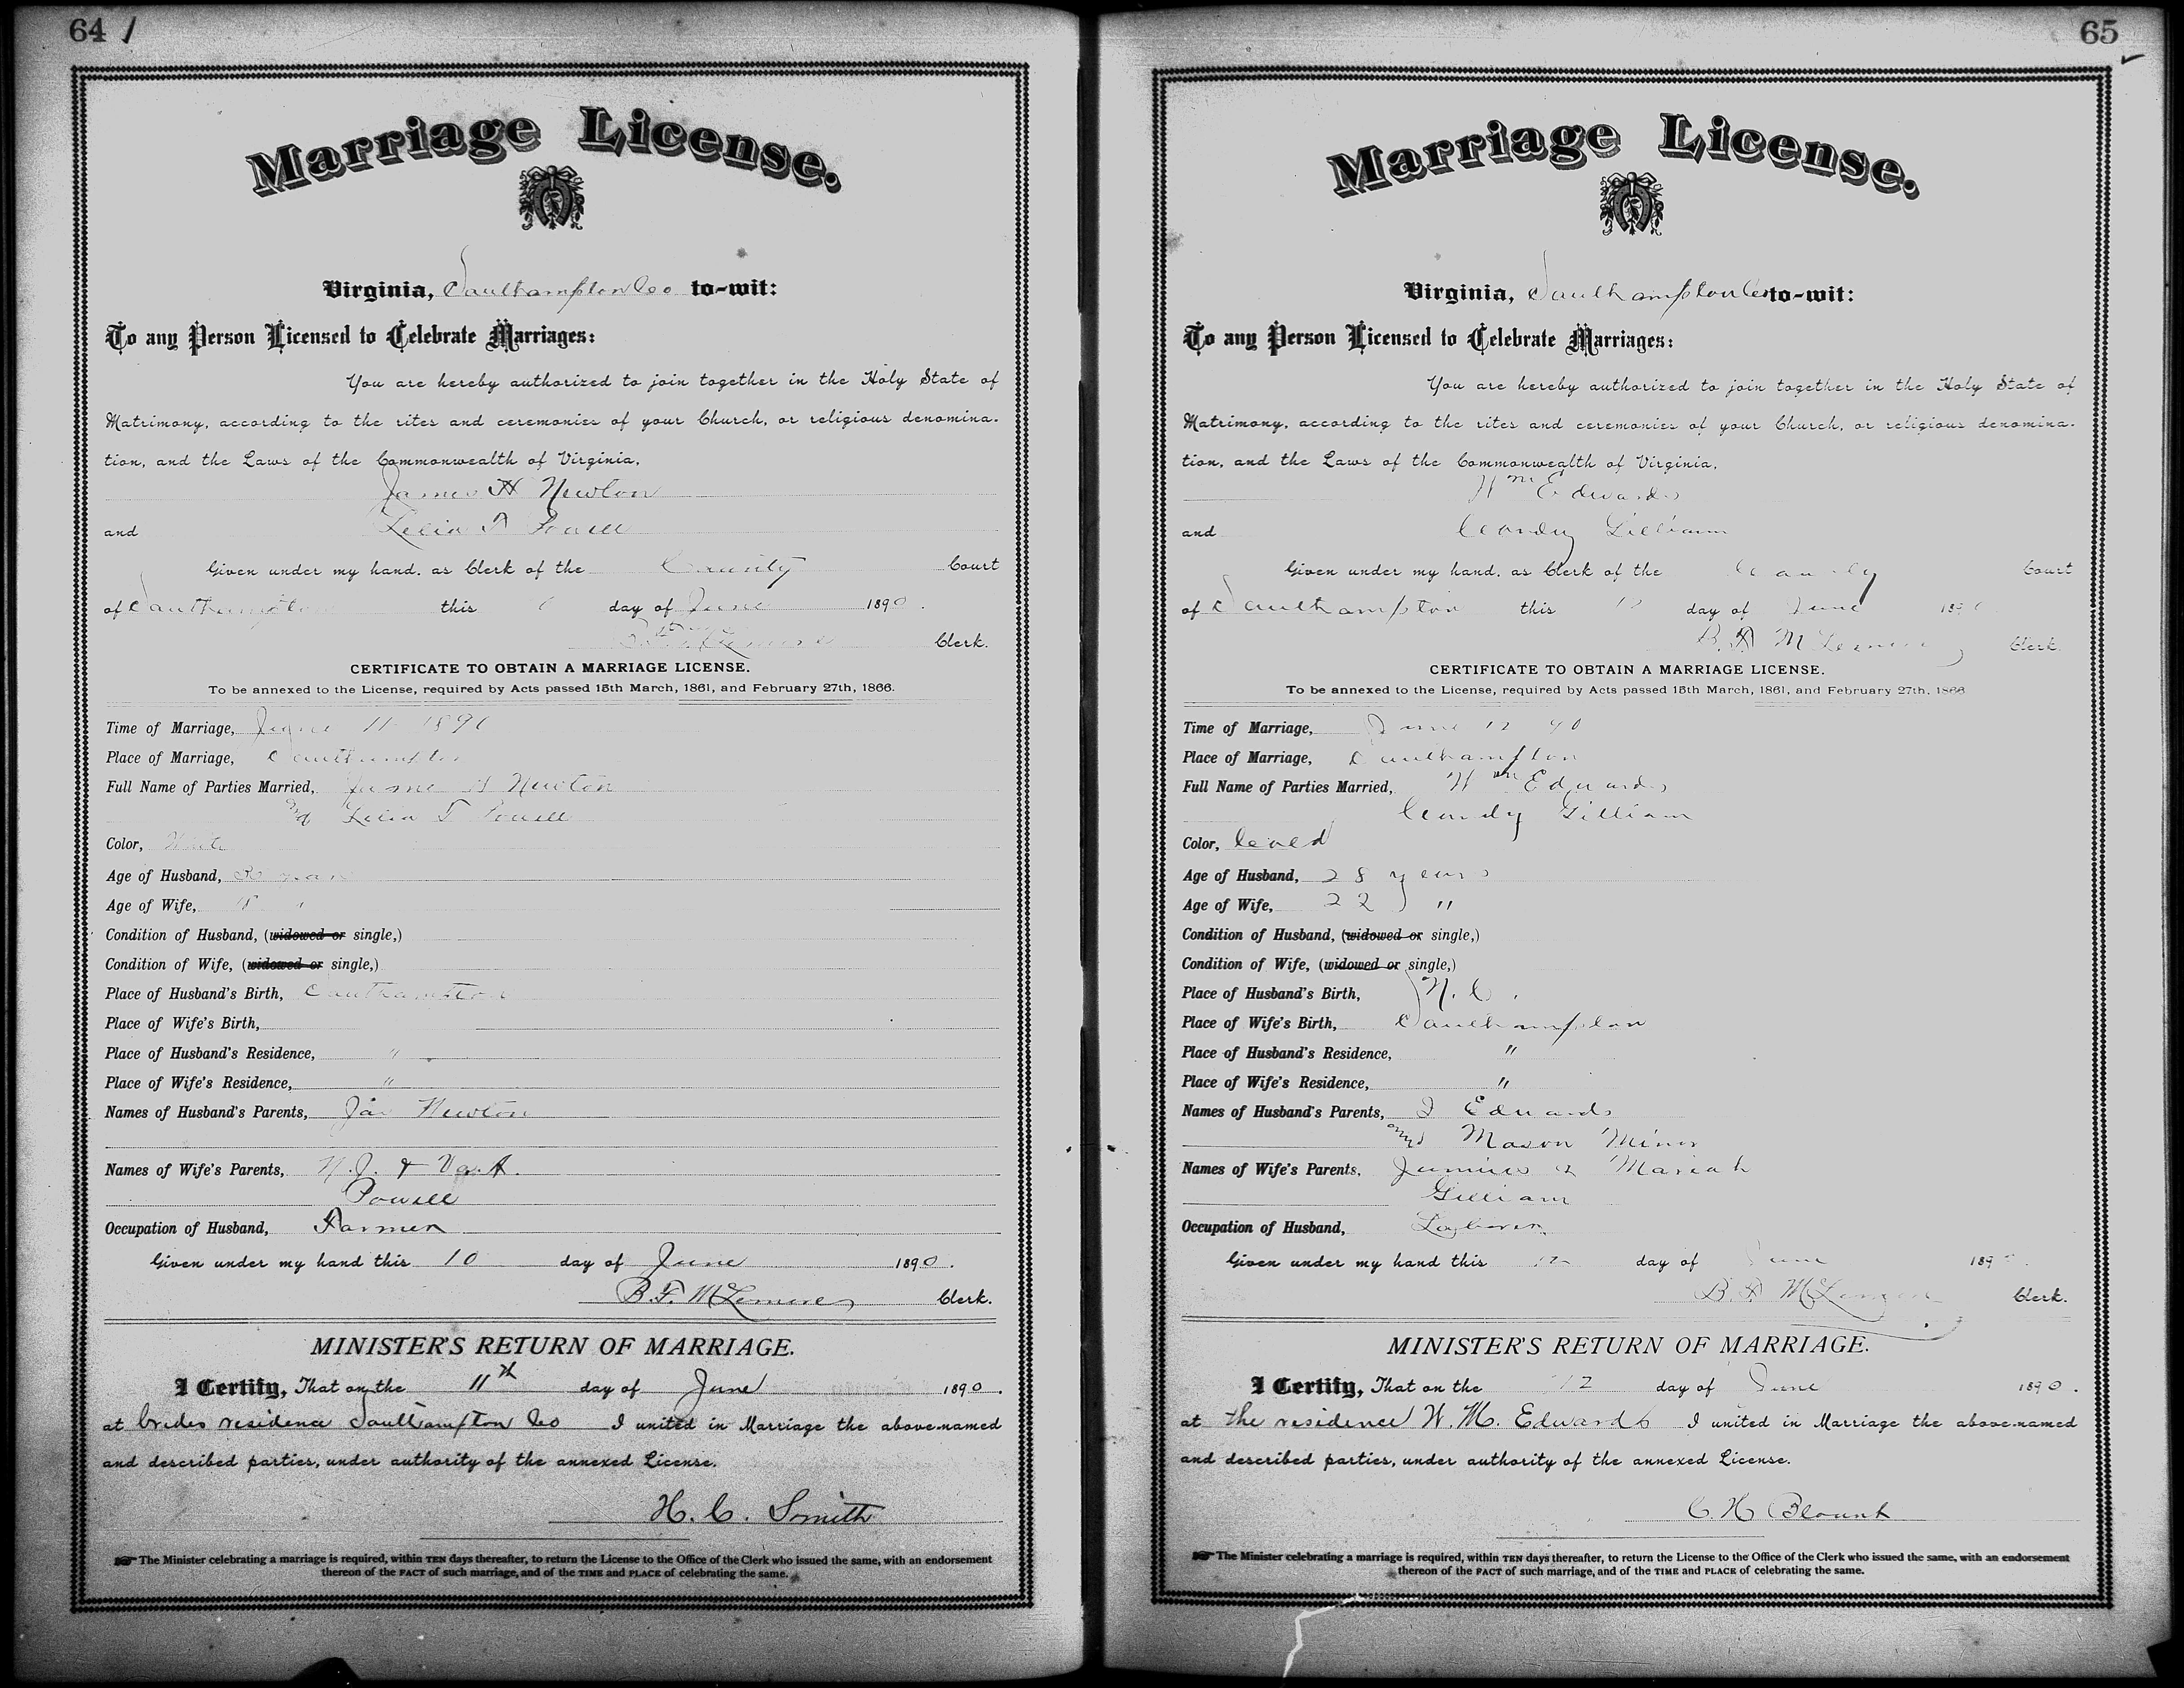 64
Marriage License.
Virginia, Southampton Co to-wit:
To any Person Licensed to Celebrate Marriages:
You are hereby authorized to join together in the Holy State of
Matrimony, according to the rites and ceremonies of your Church, or religious denomina-
tion, and the Laws of the Commonwealth of Virginia,
James H Newton
and Lelia T Powell
Given under my hand, as Clerk of the County Court
of Southampton this day of June 1890.
Clerk.
CERTIFICATE TO OBTAIN A MARRIAGE LICENSE.
To be annexed to the License, required by Acts passed 15th March, 1861, and February 27th, 1866.
Time of Marriage, June 11 1890
Place of Marriage, Southampton
Full Name of Parties Married, James H Newton
and Lelia T Powell
Color, White
Age of Husband,
Age of Wife, 18
Condition of Husband, (widowed or single,)
Condition of Wife, (widowed or single,)
Place of Husband's Birth, Southampton
Place of Wife's Birth,
Place of Husband's Residence, "
Place of Wife's Residence, "
Names of Husband's Parents, Jas Newton
Names of Wife's Parents, N.J. & Va. A.
Powell
Occupation of Husband, Farmer
Given under my hand this 10 day of June 1890.
B. F. McLemore Clerk.
MINISTER'S RETURN OF MARRIAGE.
I Certify, That on the 11th day of June 1890.
at brides residence Southampton Co I united in Marriage the above-named
and described parties, under authority of the annexed License.
H. C. Smith
The Minister celebrating a marriage is required, within TEN days thereafter, to return the License to the Office of the Clerk who issued the same, with an endorsement
thereon of the FACT of such marriage, and of the TIME and PLACE of celebrating the same.
65
Marriage License.
Virginia, Southampton Co to-wit:
To any Person Licensed to Celebrate Marriages:
You are hereby authorized to join together in the Holy State of
Matrimony, according to the rites and ceremonies of your Church, or religious denomina-
tion, and the Laws of the Commonwealth of Virginia,
Wm Edwards
and Candy Gilliam
Given under my hand, as Clerk of the County Court
of Southampton this 12 day of June 1890
B. F. McLemore Clerk.
CERTIFICATE TO OBTAIN A MARRIAGE LICENSE.
To be annexed to the License, required by Acts passed 15th March, 1861, and February 27th, 1866
Time of Marriage, June 12 90
Place of Marriage, Southampton
Full Name of Parties Married, Wm Edwards
Candy Gilliam
Color, Cold
Age of Husband, 28 years
Age of Wife, 22 "
Condition of Husband, (widowed or single,)
Condition of Wife, (widowed or single,)
Place of Husband's Birth, N. C.
Place of Wife's Birth, Southampton
Place of Husband's Residence, "
Place of Wife's Residence, "
Names of Husband's Parents, Edwards
and Mason Minor
Names of Wife's Parents, Junius & Mariah
Gilliam
Occupation of Husband, Laborer
Given under my hand this 12 day of June 189
B. F. McLemore Clerk.
MINISTER'S RETURN OF MARRIAGE.
I Certify, That on the 12 day of June 1890.
at the residence W. M. Edwards I united in Marriage the above-named
and described parties, under authority of the annexed License.
C. H Blount
The Minister celebrating a marriage is required, within TEN days thereafter, to return the License to the Office of the Clerk who issued the same, with an endorsement
thereon of the FACT of such marriage, and of the TIME and PLACE of celebrating the same.